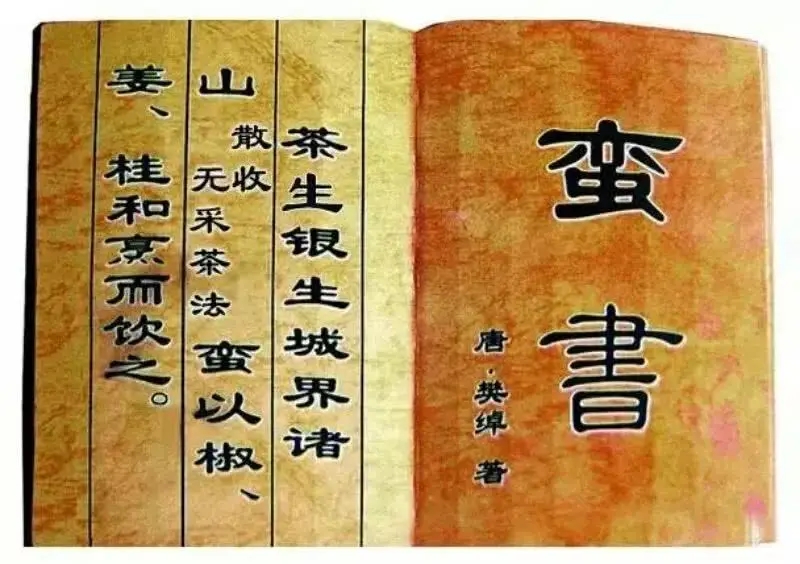 蛮書
唐·樊绰 著
茶生银生城界诸
山散收无采茶法蛮以椒、
姜、桂和烹而饮之。